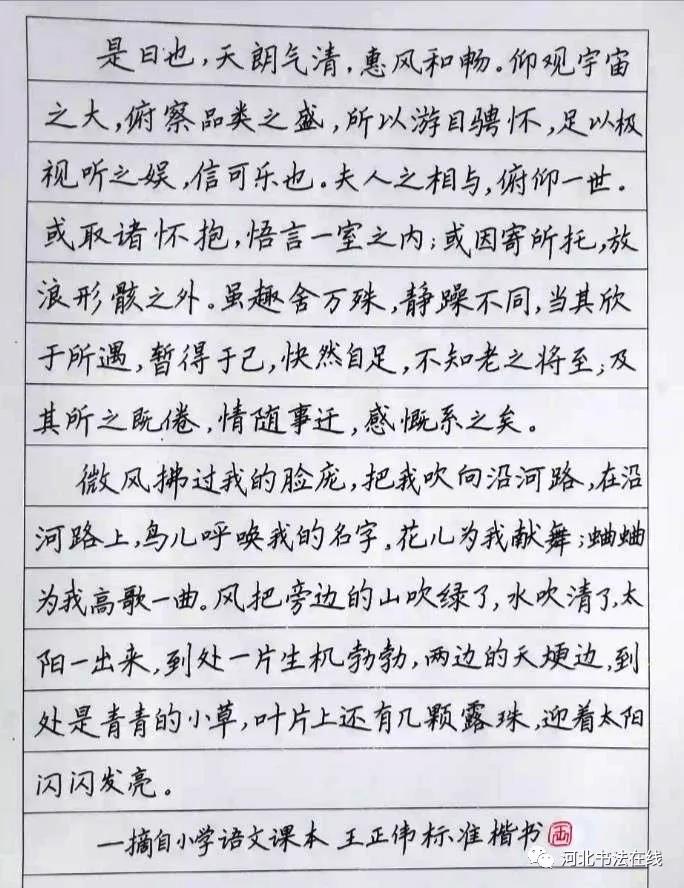 是日也,天朗气清,惠风和畅。仰观宇宙
之大,俯察品类之盛,所以游目骋怀,足以极
视听之娱,信可乐也。夫人之相与,俯仰一世。
或取诸怀抱,悟言一室之内;或因寄所托,放
浪形骸之外。虽趣舍万殊,静躁不同,当其欣
于所遇,暂得于己,快然自足,不知老之将至;及
其所之既倦,情随事迁,感慨系之矣。
微风拂过我的脸庞,把我吹向沿河路,在沿
河路上,鸟儿呼唤我的名字,花儿为我献舞;蛐蛐
为我高歌一曲。风把旁边的山吹绿了,水吹清了,太
阳一出来,到处一片生机勃勃,两边的天埂边,到
处是青青的小草,叶片上还有几颗露珠,迎着太阳
闪闪发亮。
一摘自小学语文课本 王正伟标准楷书
河北书法在线